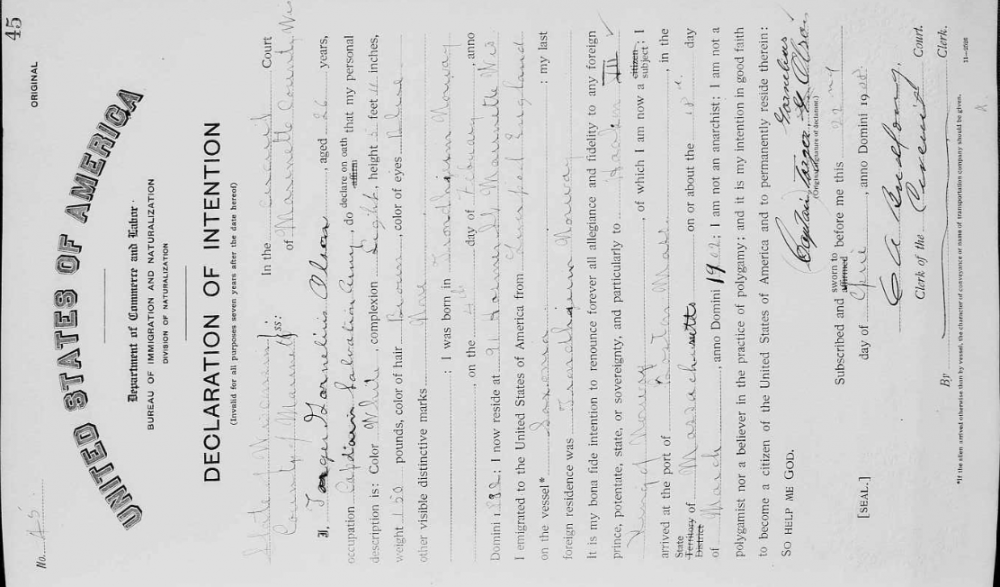 45
ORIGINAL
No. 45
UNITED STATES OF AMERICA
Department of Commerce and Labor
BUREAU OF IMMIGRATION AND NATURALIZATION
DIVISION OF NATURALIZATION
DECLARATION OF INTENTION
(Invalid for all purposes seven years after the date hereof)
State of Wisconsin
County of Marinette ss:
In the Circuit Court
of Marinette County, Wis
I, Torger Gornelius Olson, aged 26 years,
occupation Captain Salvation Army, do declare on oath affirm that my personal
description is: Color White, complexion Light, height 5 feet inches,
weight 150 pounds, color of hair Brown, color of eyes Blue
other visible distinctive marks None
: I was born in Trondhjem Norway
, on the 4th day of February, anno
Domini 1882; I now reside at Marinette Wis
I emigrated to the United States of America from Liverpool England
on the vessel* Saxonia : my last
foreign residence was Trondhjem Norway
It is my bona fide intention to renounce forever all allegiance and fidelity to any foreign
prince, potentate, state, or sovereignty, and particularly to Haakon VII
King of Norway, of which I am now a citizen subject; I
arrived at the port of Boston Mass, in the
State Territory District of Massachusetts on or about the day
of March, anno Domini 1902; I am not an anarchist; I am not a
polygamist nor a believer in the practice of polygamy; and it is my intention in good faith
to become a citizen of the United States of America and to permanently reside therein:
SO HELP ME GOD.
Captain Torger Gornelius Olson
(Original signature of declarant.)
Subscribed and sworn to affirmed before me this 22nd
day of, anno Domini 1908
[SEAL.]
Clerk of the Circuit Court.
By Clerk.
*If the alien arrived otherwise than by vessel, the character of conveyance or name of transportation company should be given.